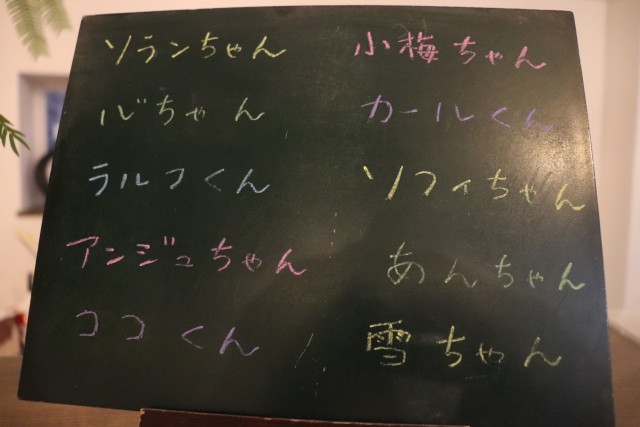 ソランちゃん
ルベちゃん
ラルフくん
アンジュちゃん
ココくん
小梅ちゃん
カールくん
ソフィちゃん
あんちゃん
雪ちゃん